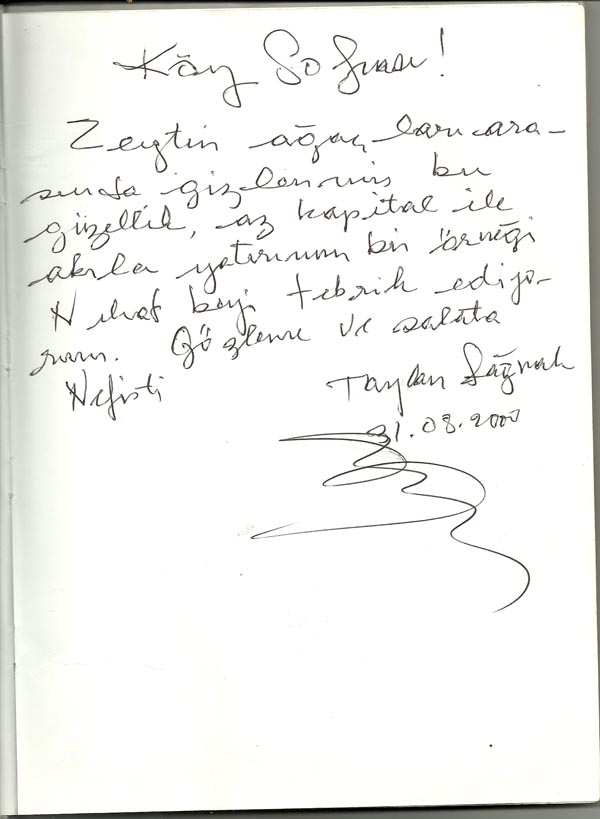 Köy Sofrası!
Zeytin ağaçları ara-
sında gizlenmiş bu
güzellik, az kapital ile
akılla yatırımın bir örneği
Nihat beyi tebrik ediyo-
rum. Gözleme ve salata
Nefisti
Taylan
31.08.2000